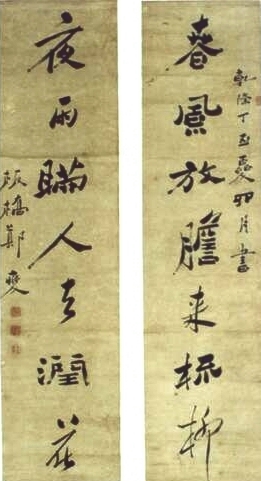 乾隆丁丑夏卯月書
春風放膽来梳柳
夜雨瞞人去潤花
板橋鄭燮